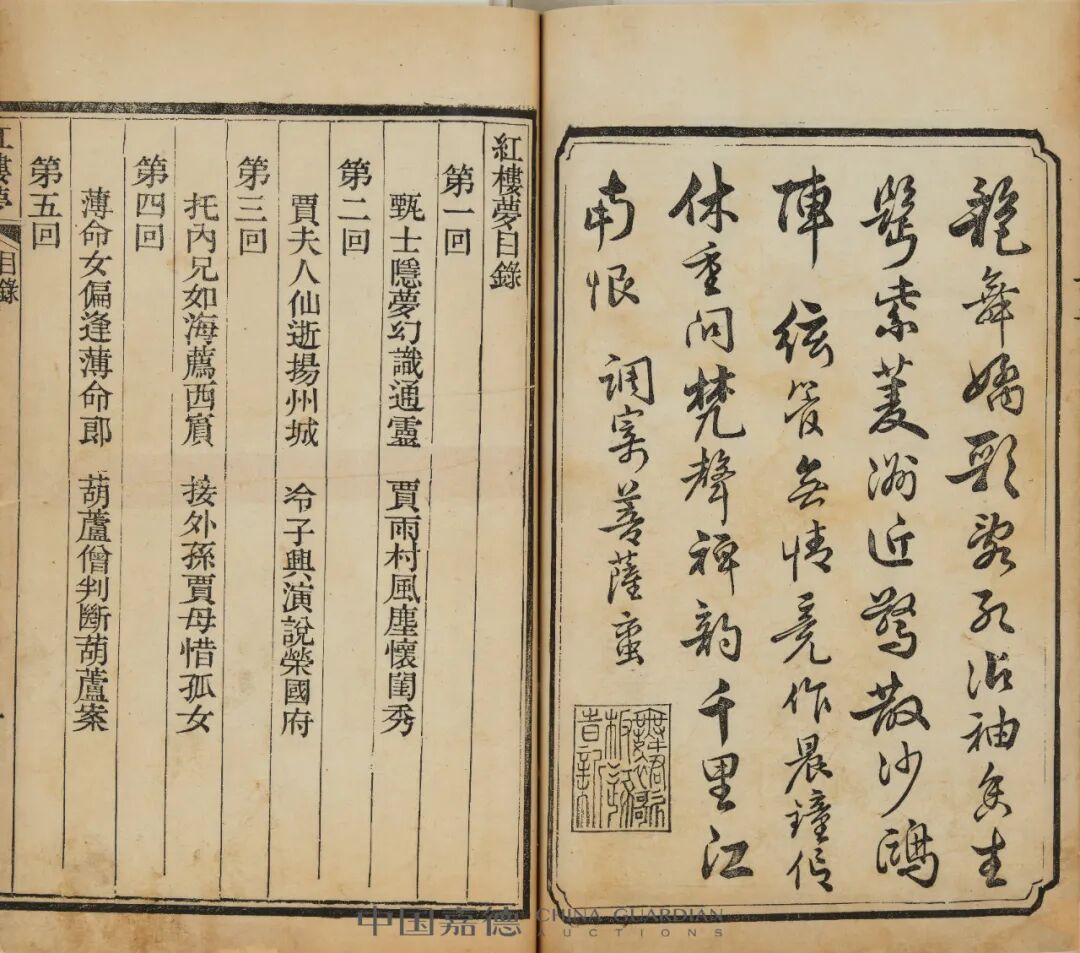 舞嬌歌沾袖生
紫菱洲近驚散沙鷗
陣 絃管無情竟作晨鐘信
休重問梵聲禪韵千里江
南恨 調寄菩薩蠻
紅樓夢目錄
第一回
甄士隱夢幻識通靈 賈雨村風塵懷閨秀
第二回
賈夫人仙逝揚州城 冷子興演說榮國府
第三回
托內兄如海薦西賓 接外孫賈母惜孤女
第四回
薄命女偏逢薄命郎 葫蘆僧判斷葫蘆案
第五回
紅樓夢 目錄
中国嘉德 CHINA GUARDIAN
AUCTIONS